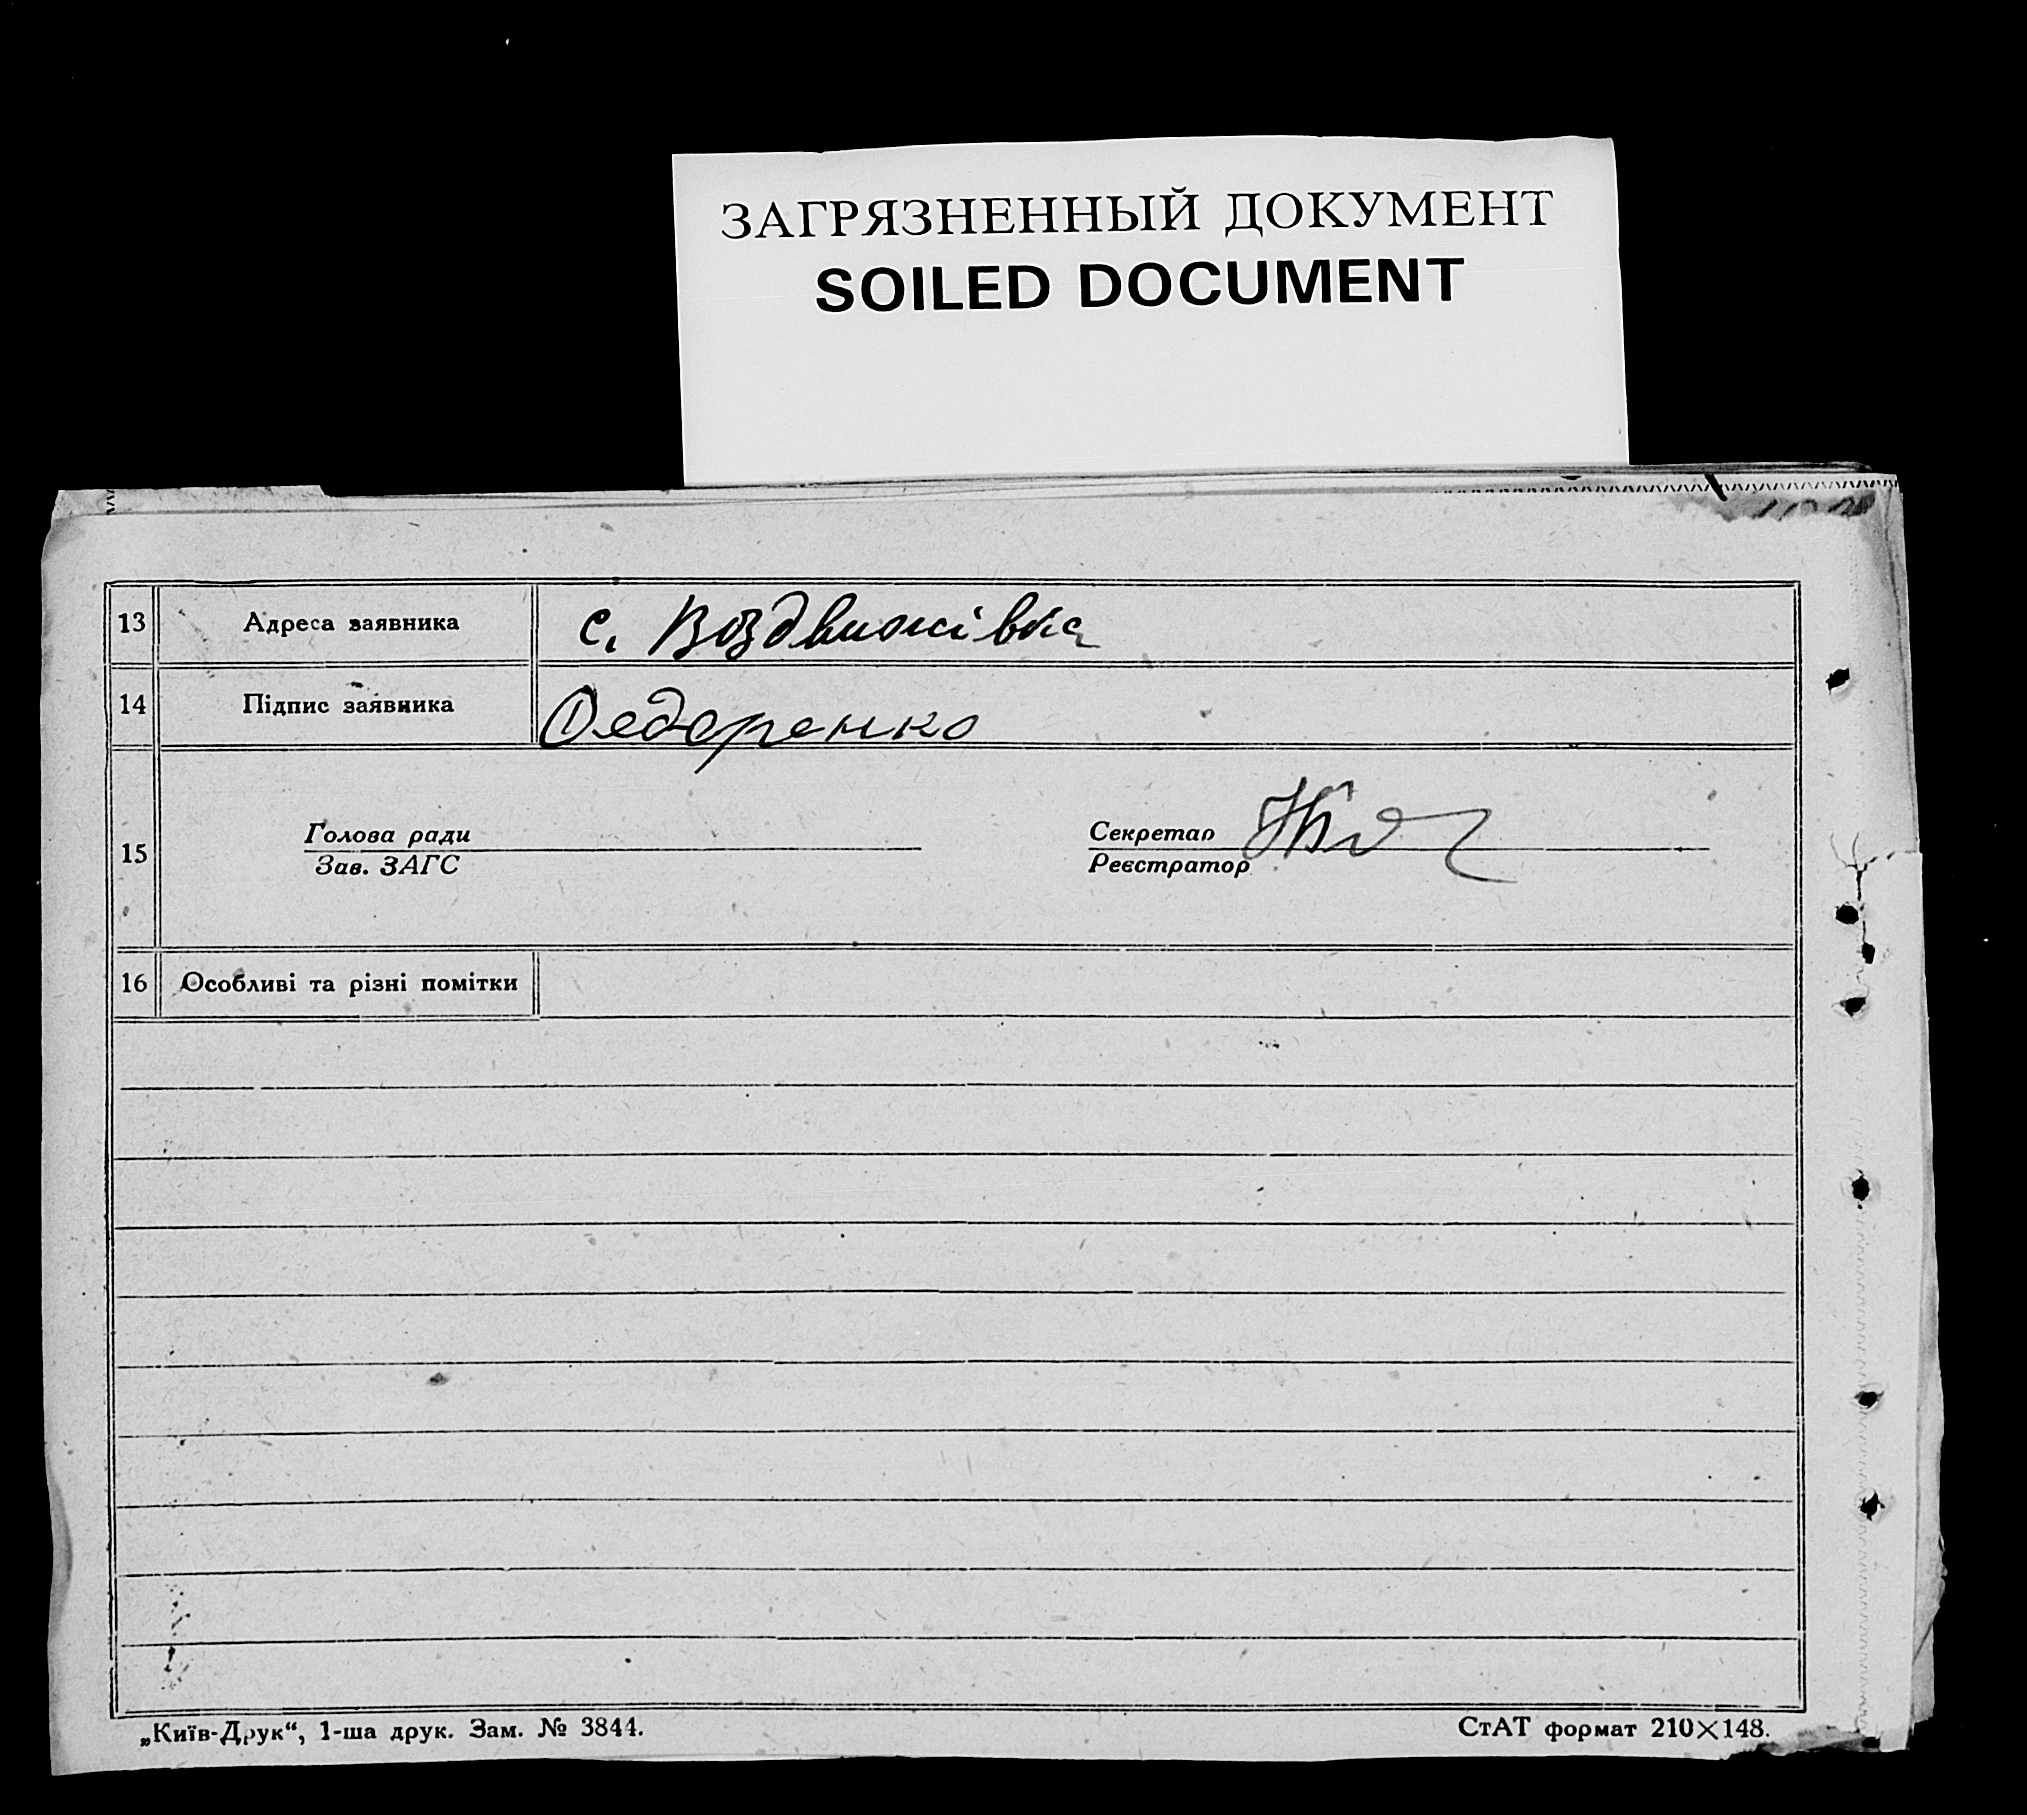 ЗАГРЯЗНЕННЫЙ ДОКУМЕНТ
SOILED DOCUMENT
13 Адреса заявника с. Воздвижівка
14 Підпис заявника Федоренко
15 Голова ради Секретар
Зав. ЗАГС Реєстратор
16 Особливі та різні помітки
„Київ-Друк“, 1-ша друк. Зам. № 3844. СтАТ формат 210×148.